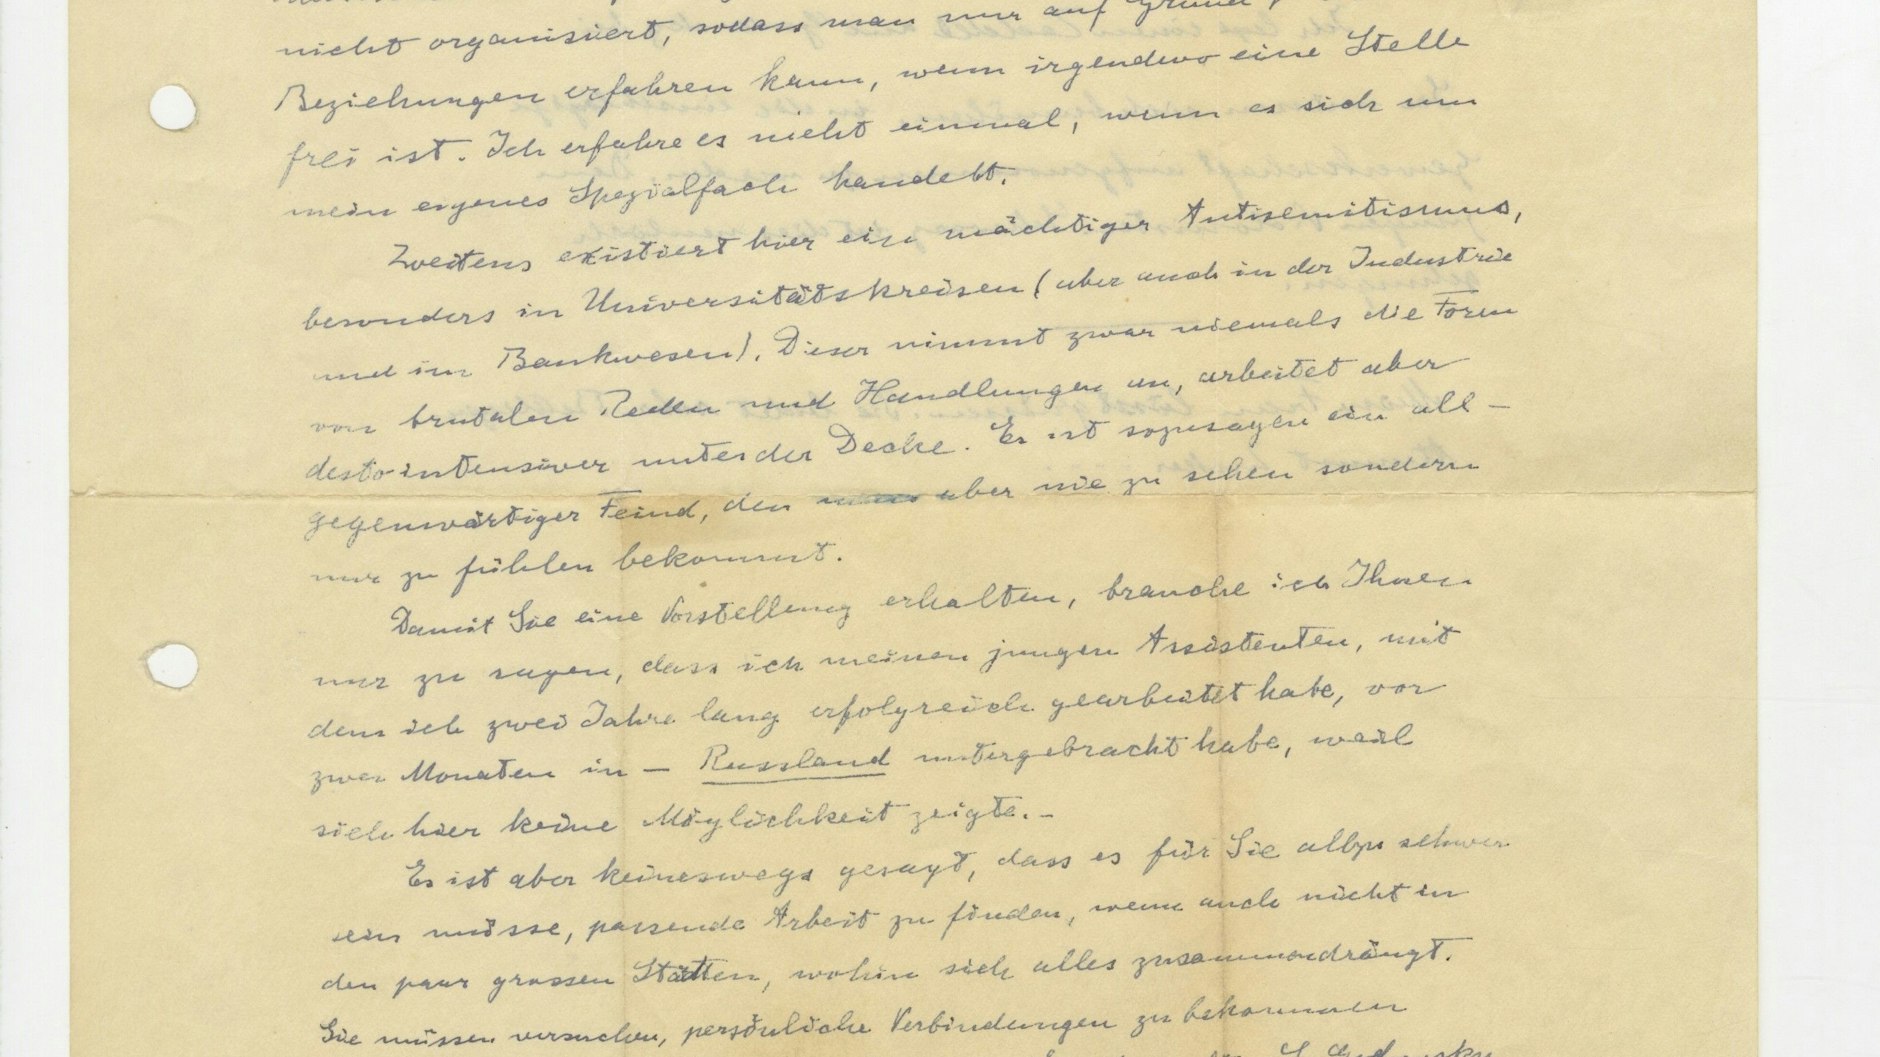 nicht organisiert, sodass man nur auf Grund
Beziehungen erfahren kann, wenn irgendwo eine Stelle
frei ist. Ich erfahre es nicht einmal, wenn es sich um
mein eigenes Spezialfach handelt.
Zweitens existiert hier ein mächtiger Antisemitismus,
besonders in Universitätskreisen (aber auch in der Industrie
und im Bankwesen). Dieser nimmt zwar niemals die Form
von brutalen Reden und Handlungen an, arbeitet aber
desto intensiver unter der Decke. Er ist sozusagen ein all-
gegenwärtiger Feind, den aber nie zu sehen sondern
nur zu fühlen bekommt.
Damit Sie eine Vorstellung erhalten, brauche ich Ihnen
nur zu sagen, dass ich meinen jungen Assistenten, mit
dem ich zwei Jahre lang erfolgreich gearbeitet habe, vor
zwei Monaten in — Russland untergebracht habe, weil
sich hier keine Möglichkeit zeigte.—
Es ist aber keineswegs gesagt, dass es für Sie allzu schwer
sein müsse, passende Arbeit zu finden, wenn auch nicht in
den paar grossen Städten, wohin sich alles zusammendrängt.
Sie müssen versuchen, persönliche Verbindungen zu bekommen